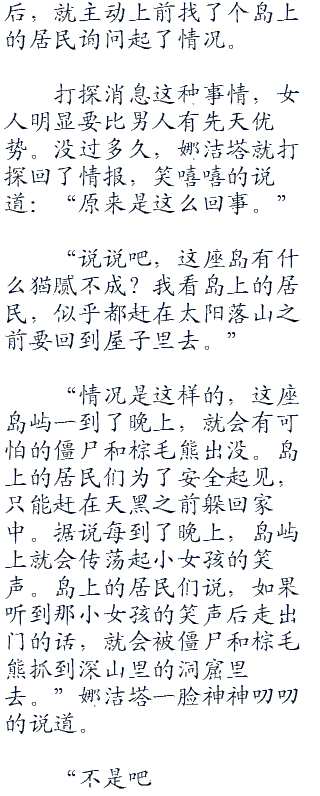 后，就主动上前找了个岛上
的居民询问起了情况。
打探消息这种事情，女
人明显要比男人有先天优
势。没过多久，娜洁塔就打
探回了情报，笑嘻嘻的说
道：“原来是这么回事。”
“说说吧，这座岛有什
么猫腻不成？我看岛上的居
民，似乎都赶在太阳落山之
前要回到屋子里去。”
“情况是这样的，这座
岛屿一到了晚上，就会有可
怕的僵尸和棕毛熊出没。岛
上的居民们为了安全起见，
只能赶在天黑之前躲回家
中。据说每到了晚上，岛屿
上就会传荡起小女孩的笑
声。岛上的居民们说，如果
听到那小女孩的笑声后走出
门的话，就会被僵尸和棕毛
熊抓到深山里的洞窟里
去。”娜洁塔一脸神神叨叨
的说道。
“不是吧